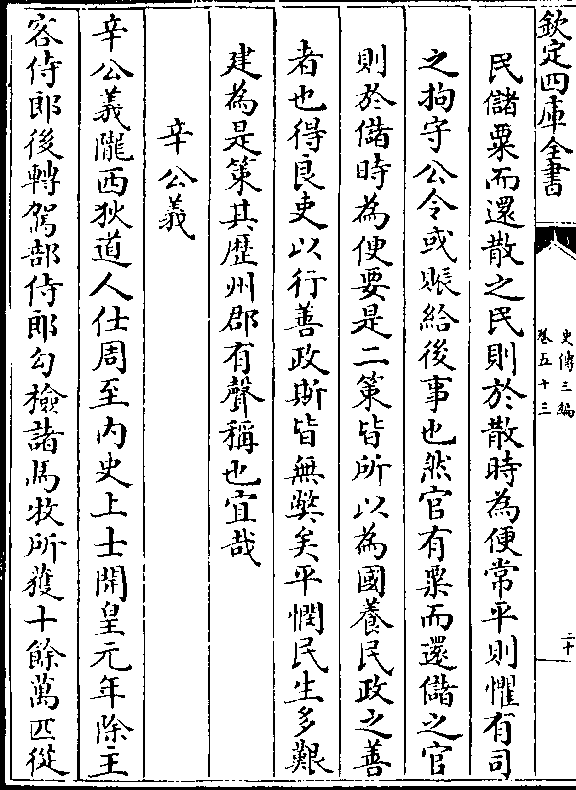 欽定四庫全書
史傳三編
卷五十三
二十
民儲粟而還散之民則於散時為便常平則懼有司
之拘守公令或賑給後事也然官有粟而還儲之官
則於儲時為便要是二策皆所以為國養民政之善
者也得良吏以行善政斯皆無獘矣平憫民生多艱
建為是策其歴州郡有聲稱也宜哉
辛公義
辛公義隴西狄道人仕周至内史上士開皇元年除主
客侍郎後轉駕部侍郎勾檢諸馬牧所獲十餘萬匹從